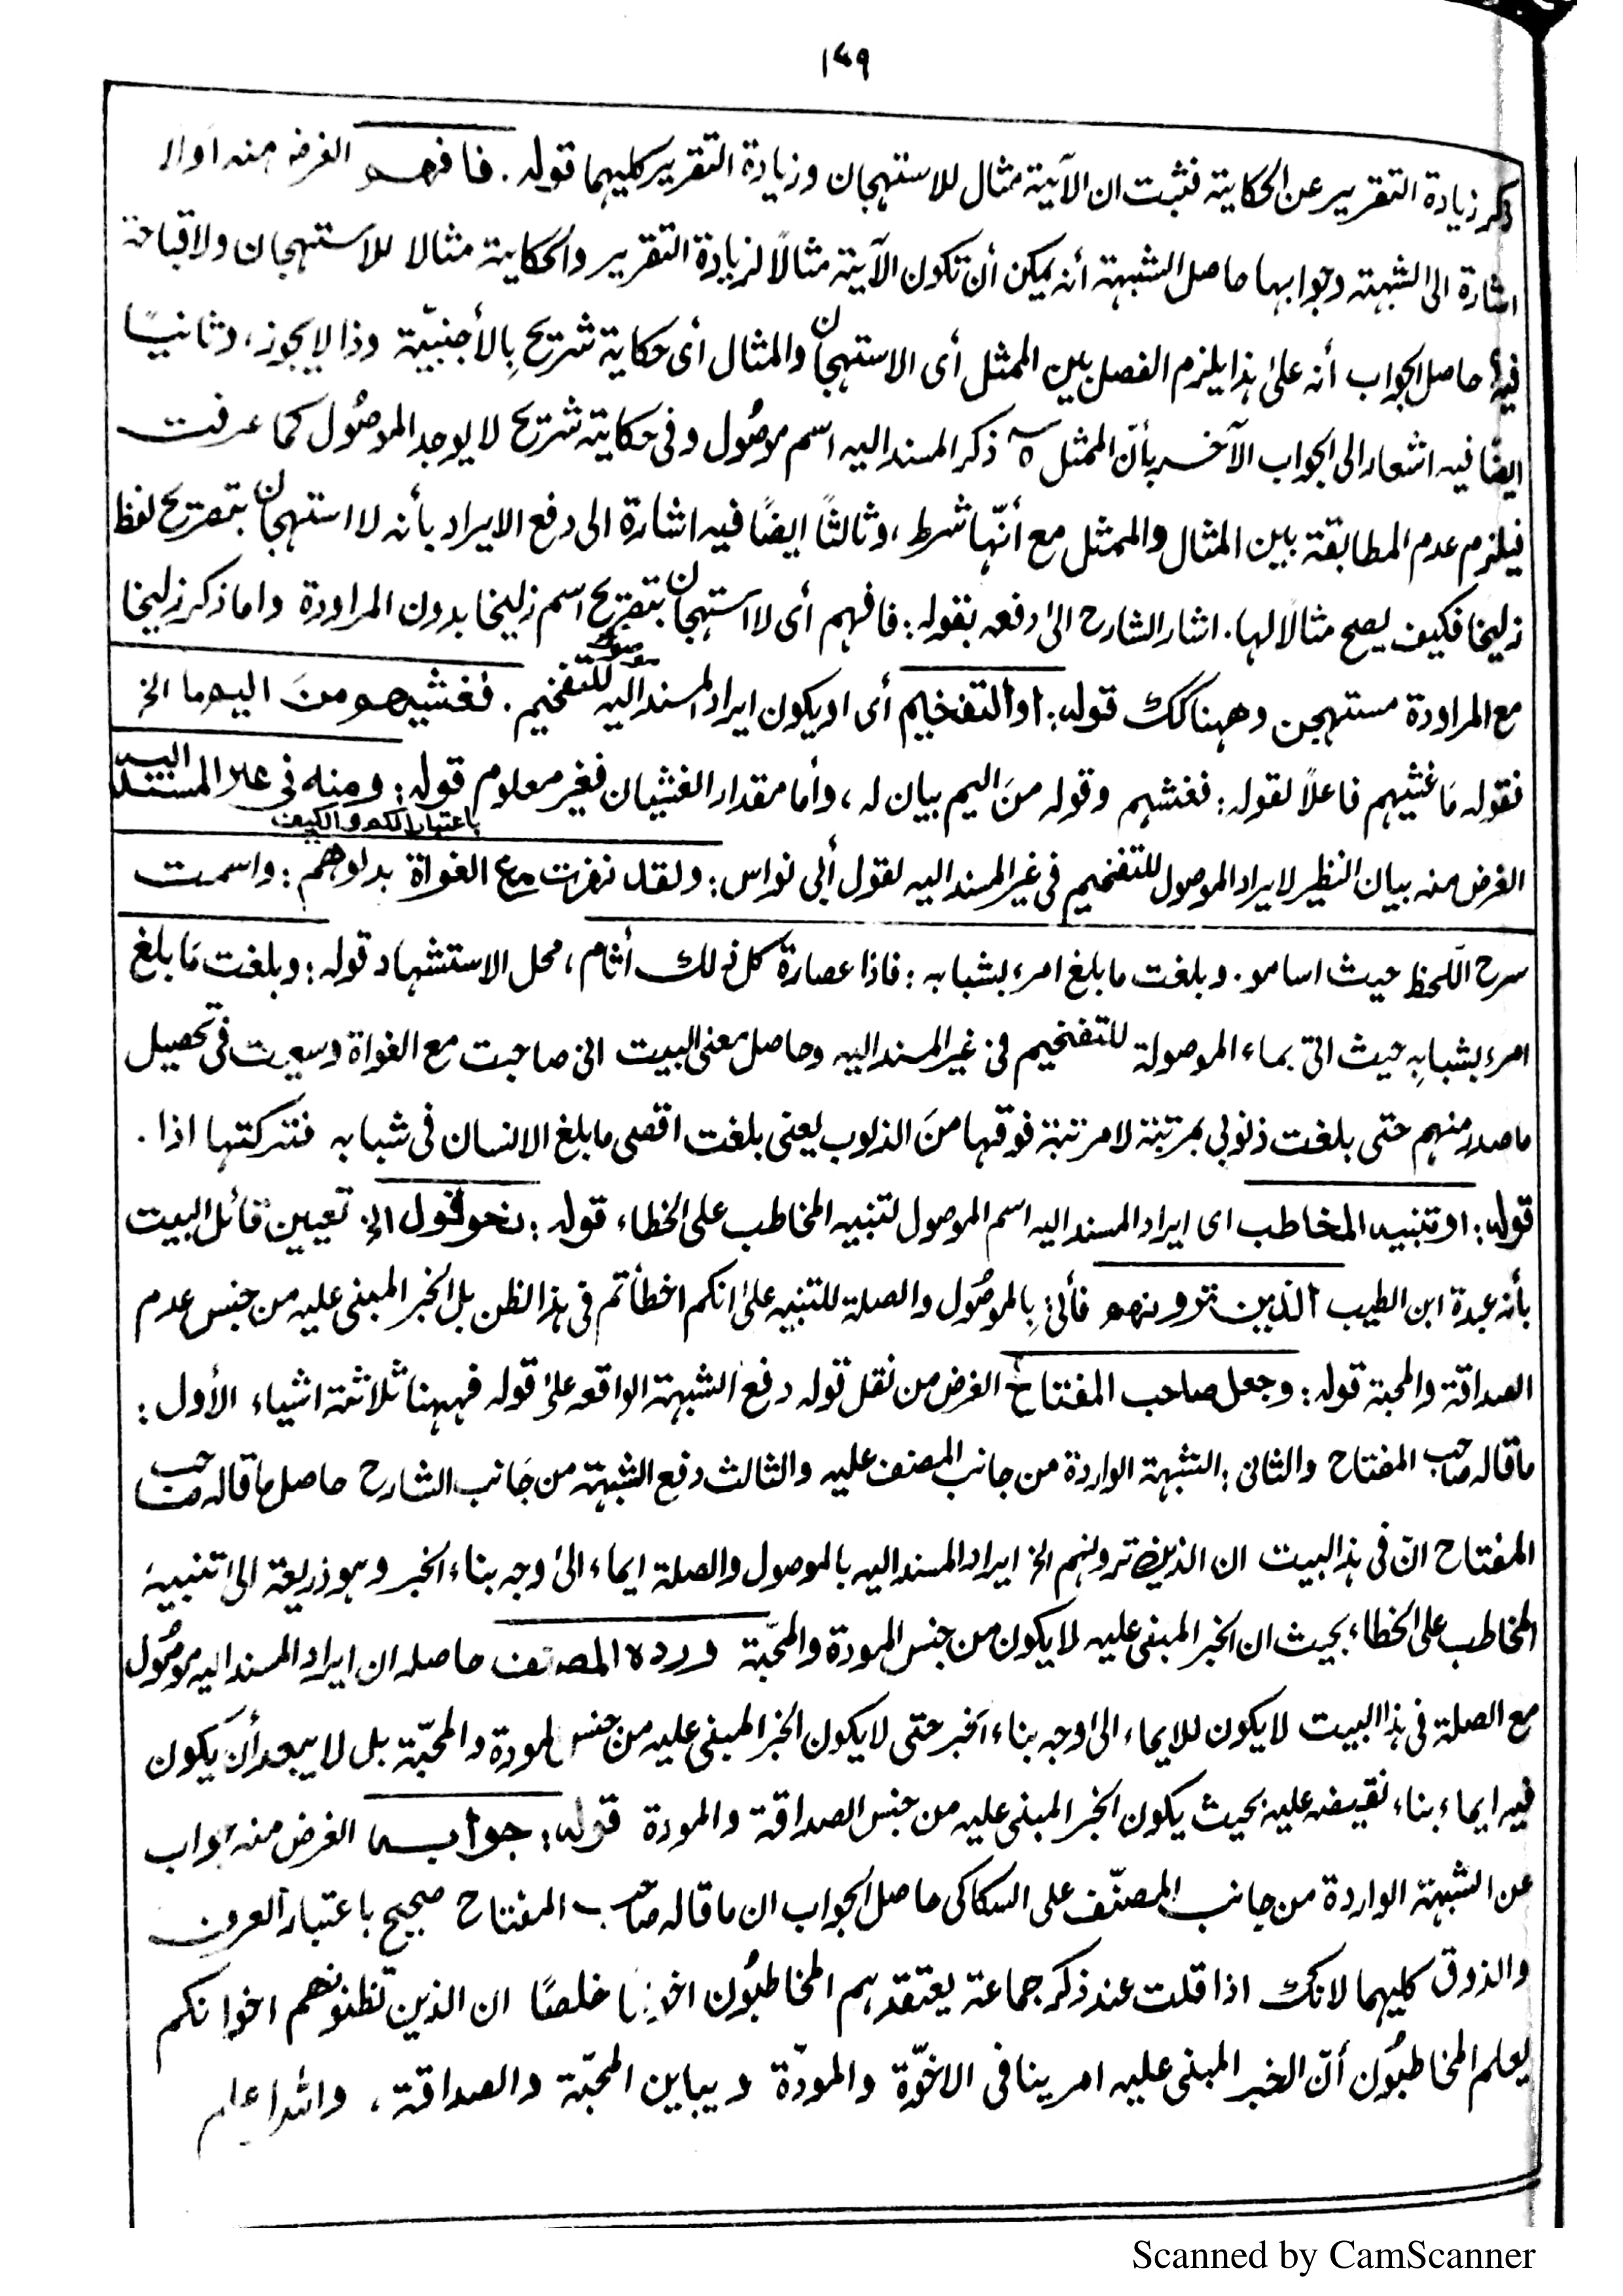 ١٧٩
ذكر زيادة التقرير عن الحكاية فثبت ان الآية مثال للاستهجان وزيادة التقرير كليهما قوله . فافهم الغرض منه اولا
اشارة الى الشبهة وجوابها حاصل الشبهة أنه يمكن أن تكون الآية مثالاً لزيادة التقرير والحكاية مثالا للاستهجان ولا قباحة
فيه؟ حاصل الجواب أنه على هذا يلزم الفصل بين الممثل أى الاستهجان والمثال أى حكاية شريح بالأجنبيّة وذا لايجوز، وثانيًا
ايضًا فيه اشعار الى الجواب الآخر بأنّ الممثل له ذكر المسند اليه اسم موصُول وفى حكاية شريح لا يوجد الموصُول كما عرفت
فيلزم عدم المطابقة بين المثال والممثل مع أنّها شرط، وثالثًا ايضًا فيه اشارة الى دفع الايراد بأنه لا استهجان بتصريح لفظ
زليخا فكيف يصح مثالا لها. اشار الشارح الىٰ دفعه بقوله: فافهم أى لا استهجان بتصريح اسم زليخا بدون المراودة واما ذكر زليخا
مع المراودة مستهجن وههنا كك قوله: او التفخيم أى او يكون ايراد المسند اليه موصولا للتفخيم . فغشيهم منَ اليم ما الخ
فقوله مَا غشيهم فاعلاً لقوله: فغشهم وقوله منَ اليم بيان له، وأما مقدار الغشيان فغير معلوم باعتبار الكم والكيف قوله: ومنه فى غير المسند اليه
الغرض منه بيان النظير لايراد الموصول للتفخيم فى غير المسند اليه لقول أبى نواس: ولقد نهزت مع الغواة بدلوهم: واسمت
سرح اللّحظ حيث اسامو. وبلغت ما بلغ امرء بشبابه: فاذا عصارة كل ذلك أثام، محل الاستشهاد قوله: وبلغت مَا بلغ
امرء بشبابِه حيث اتى بماء الموصولة للتفخيم فى غير المسند اليه وحاصل معنى البيت انى صاحبت مع الغواة وسعيت فى تحصيل
ما صدر منهم حتى بلغت ذنوبى بمرتبة لا مرتبة فوقها منَ الذنوب يعنى بلغت اقصى ما بلغ الانسان فى شبابه فتركتها اذا .
قوله: او تنبيه المخاطب اى ايراد المسند اليه اسم الموصول لتنبيه المخاطب على الخطاء قوله: نحو قول الخ تعيين قائل البيت
بأنه عبدة ابن الطيب الذين ترونهم فأتى بالموصُول والصلة للتنبيه علىٰ انكم اخطأتم فى هذا الظن بل الخبر المبنى عليه من جنس عدم
الصداقة والمحبة قوله: وجعل صاحب المفتاح الغرض من نقل قوله دفع الشبهة الواقعه علىٰ قوله فههنا ثلاثة اشياء الأول:
ما قاله صاحب المفتاح والثانى: الشبهة الواردة من جانب المصنف عليه والثالث دفع الشبهة من جَانب الشارح حاصل ما قاله صاحب
المفتاح انّ فى هذا البيت ان الذين ترونهم الخ ايراد المسند اليه بالموصول والصلة ايماء الىٰ وجه بناء الخبر وهو ذريعة الىٰ تنبيه
المخاطب على الخطاء بحيث ان الخبر المبنى عليه لا يكون من جنس المودة والمحبّة ورده المصنف حاصله ان ايراد المسند اليه موصُول
مع الصلة فى هذا البيت لا يكون للايماء الىٰ وجه بناء الخبر حتى لا يكون الخبر المبنى عليه من جنس المودة والمحبّة بل لا يبعد أن يَكون
فيه ايماء بناء نقيضه عليه بحيث يكون الخبر المبنى عليه من جنس الصداقة والمودة قوله: جوابه الغرض منه جواب
عن الشبهة الواردة من جانب المصنّف على السكاكى حاصل الجواب ان ما قاله صاحب المفتاح صحيح باعتبار العرف
والذوق كليهما لانك اذا قلت عند ذكر جماعة يعتقدهم المخاطبُون اخوانا خلصًا ان الذين تظنونهم اخوانكم
يعلم المخاطبُون أنّ الخبر المبنى عليه امر ينافى الاخوّة والمودّة ويباين المحبّة والصداقة، والله اعلم
Scanned by CamScanner